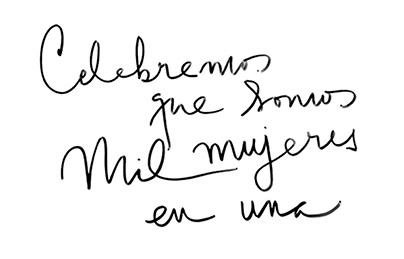 Celebremos
que somos
Mil mujeres
en una